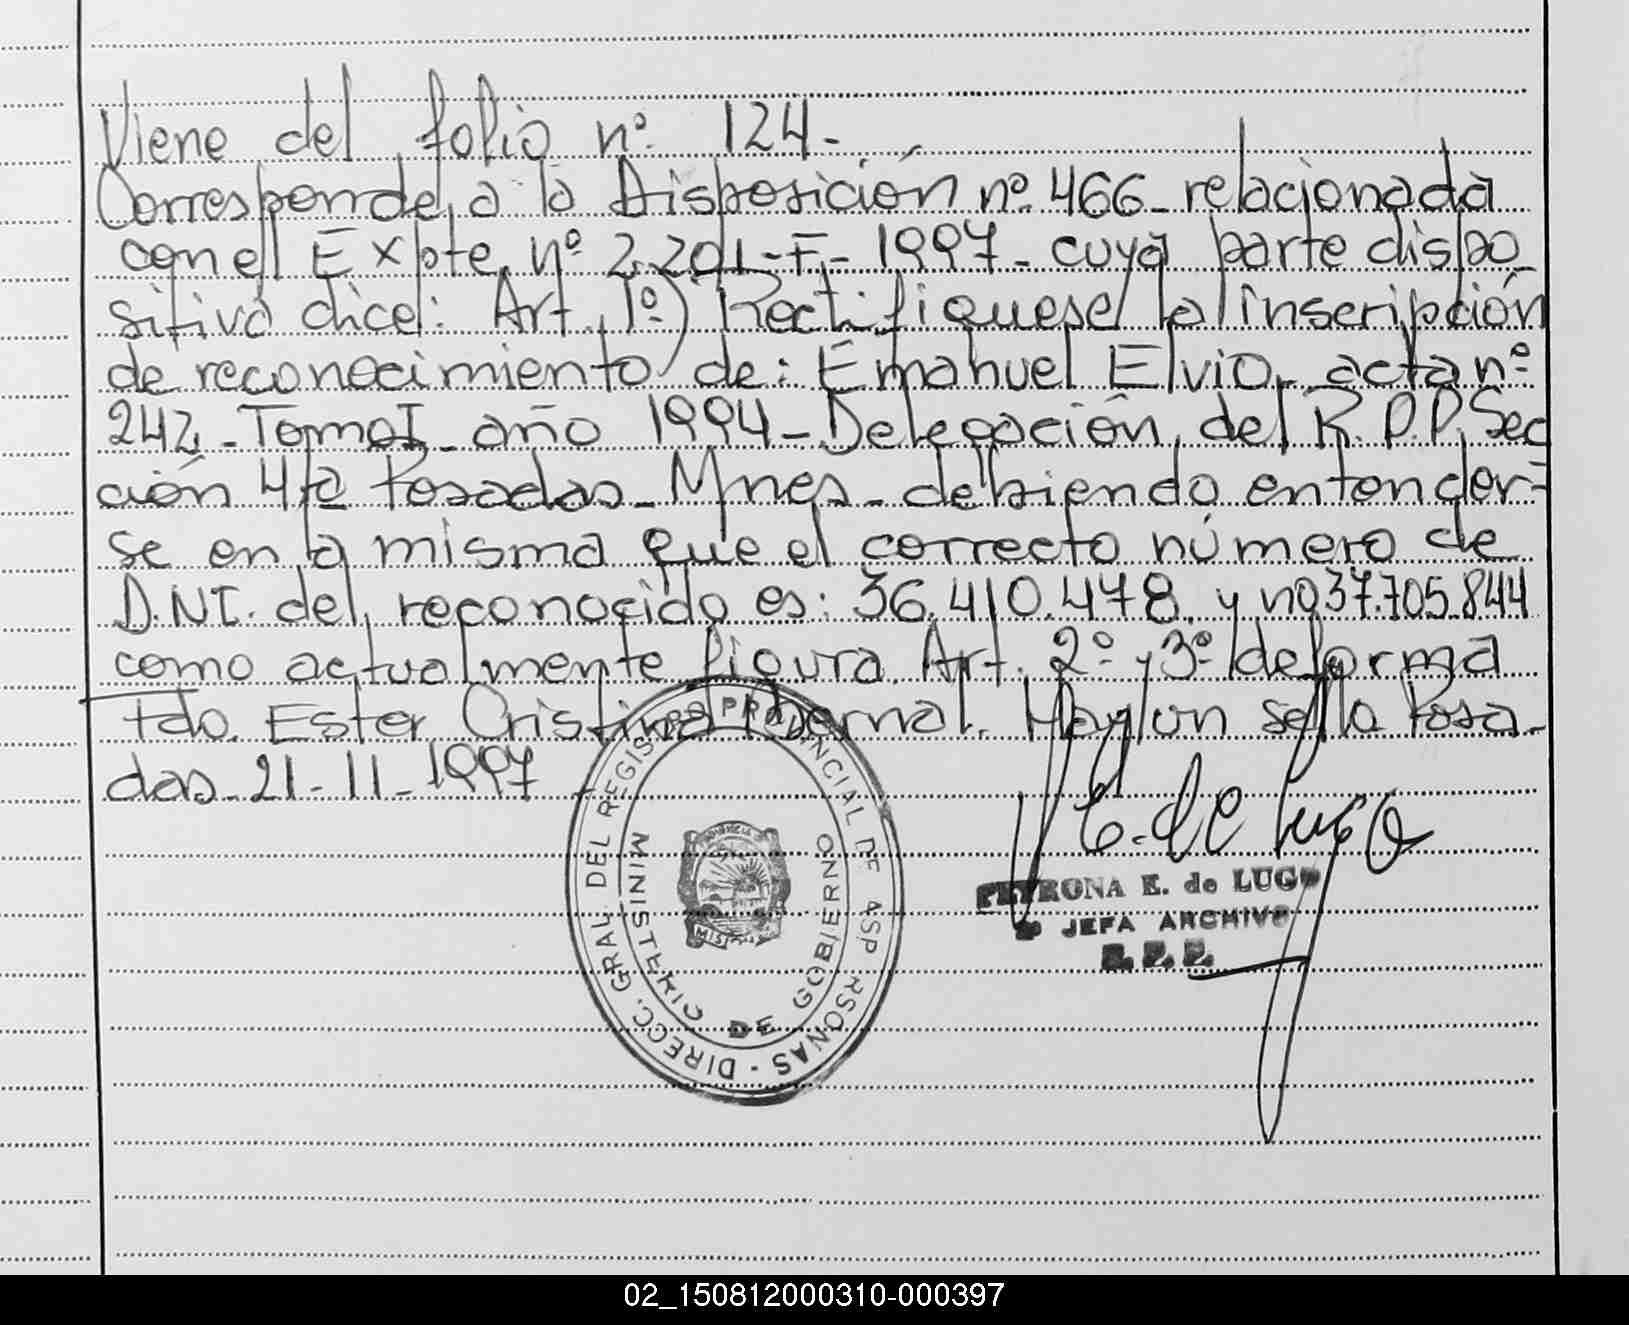 Viene del folio nº 124-
Corresponde a la Disposición nº 466- relacionada
con el Expte nº 2.201-F- 1997- cuya parte dispo
sitiva dice: Art. 1º) Rectifiquese la inscripción
de reconocimiento de: Emanuel Elvio, acta nº
242- Tomo I- año 1994- Delegación del R.P.P. Sec
ción 4ta Posadas- Mnes- debiendo entender=
se en la misma que el correcto número de
D.NI. del reconocido es: 36.410.478 y no 37.705.844
como actualmente figura Art. 2º y 3º de forma
Fdo. Ester Cristina Bernal. Hay un sello Posa-
das- 21-11-1997
DIRECC. GRAL DEL REGISTRO PROVINCIAL DE LAS PERSONAS -
MINISTERIO DE GOBIERNO
E. de Lugo
PETRONA E. de LUGO
JEFA ARCHIVO
R. P. P.
02_150812000310-000397